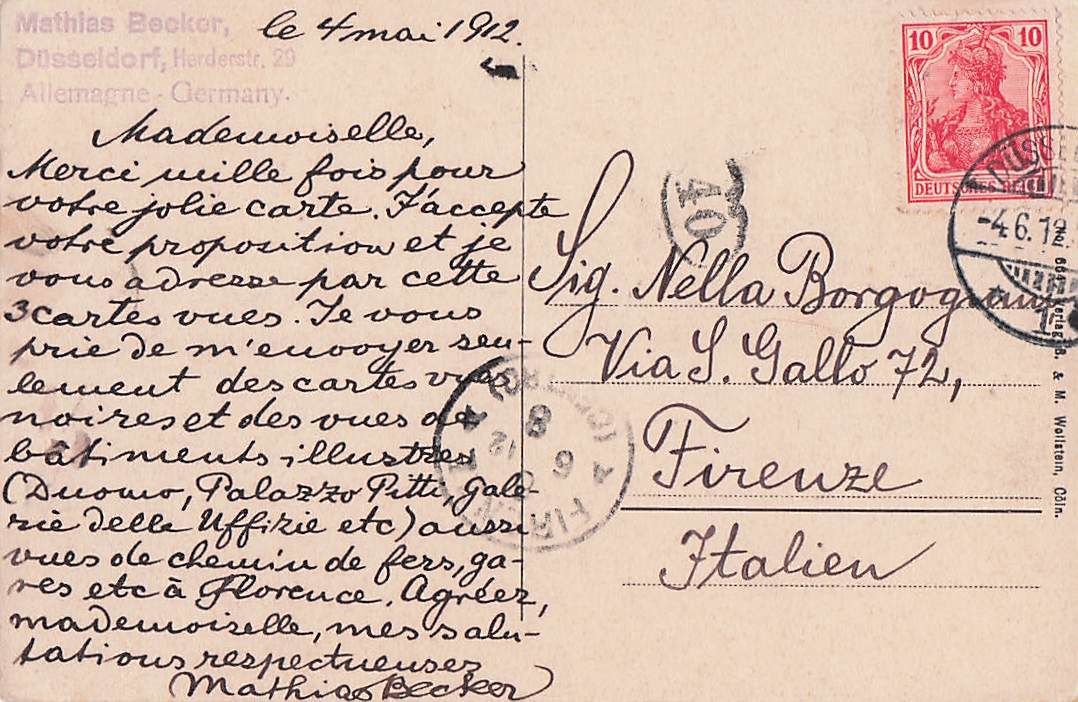 Mathias Becker,
Düsseldorf, Herderstr. 29
Allemagne - Germany.
le 4 mai 1912.
Mademoiselle,
Merci mille fois pour
votre jolie carte. J'accepte
votre proposition et je
vous adresse par cette
3 cartes vues. Je vous
prie de m'envoyer seu-
lement des cartes vues
noires et des vues de
bâtiments illustres
(Duomo, Palazzo Pitti, Gale-
rie delle Uffizie etc) aussi
vues de chemin de fers, ga-
res etc à Florence. Agréez,
mademoiselle, mes salu-
tations respectueuses
Mathias Becker
10 10
DEUTSCHES REICH
DÜSSEL
-4.6.12.
40
Sig. Nella Borgognini
Via S. Gallo 72,
Firenze
Italien
FIRENZE
8
6
12
& M. Wollstein, Cöln.